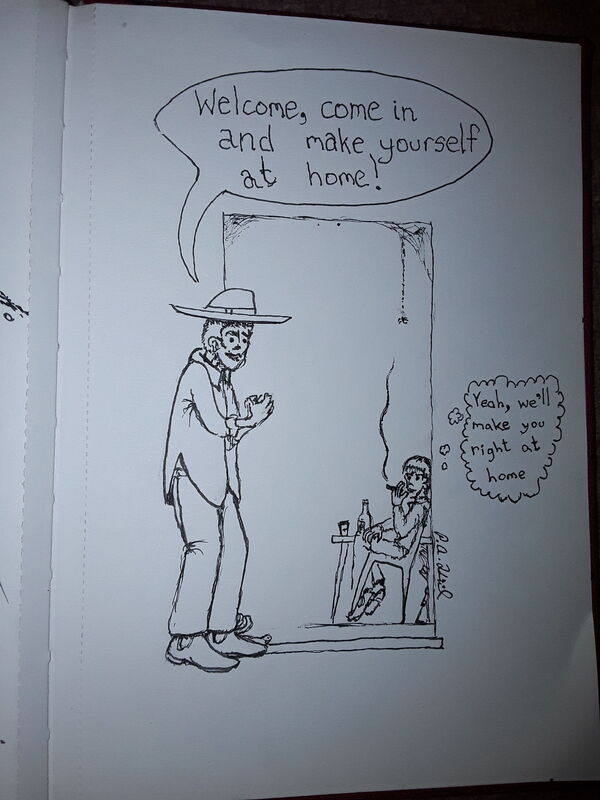 Welcome, come in
and make yourself
at home!
Yeah, we'll
make you
right at
home